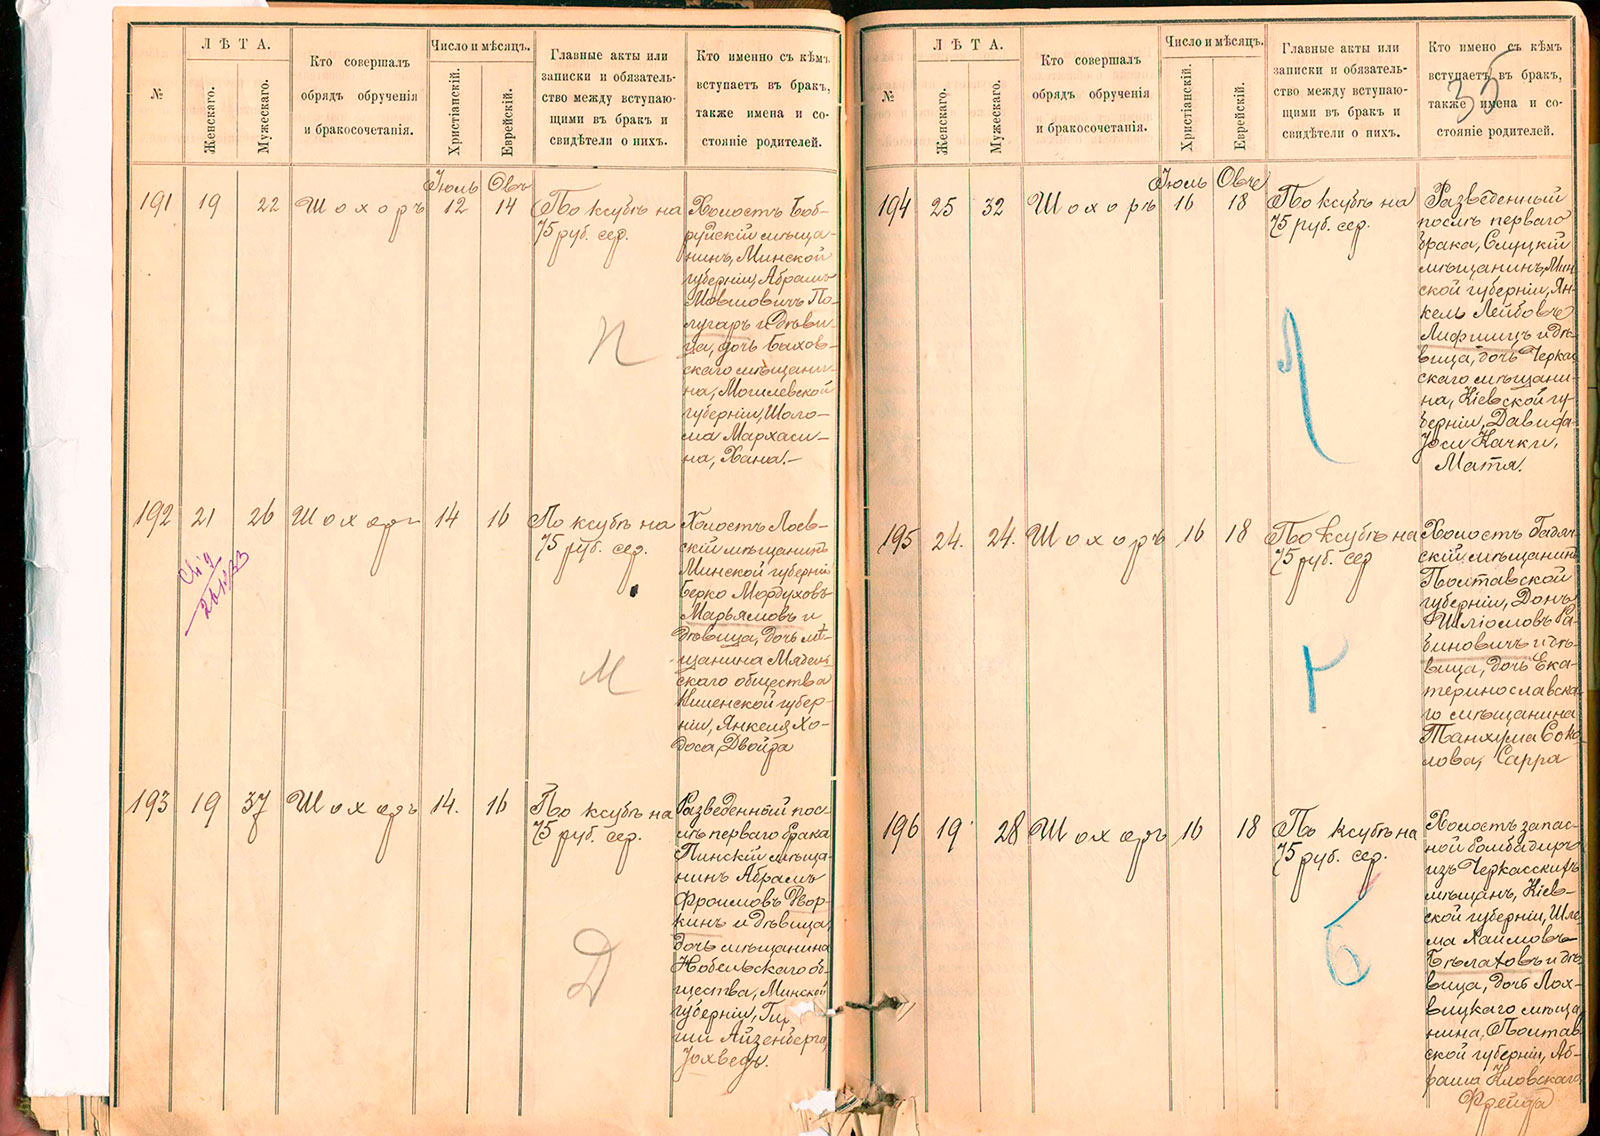 №
ЛѢТА.
Женскаго.
Мужескаго.
Кто совершалъ
обрядъ обрученія
и бракосочетанія.
Число и мѣсяцъ.
Христіанскій.
Еврейскій.
Главные акты или
записки и обязатель-
ство между вступаю-
щими въ бракъ и
свидѣтели о нихъ.
Кто именно съ кѣмъ
вступаетъ въ бракъ,
также имена и со-
стояніе родителей.
Іюль Овъ
191 19 22 Шохоръ 12 14
По ксубѣ на
75 руб. сер.
Холостъ Боб-
руйскій мѣща-
нинъ, Минской
губерніи, Абрамъ
Мовшовичъ По-
лугаръ и дѣви-
ца, дочь Быхов-
скаго мѣщани-
на, Могилевской
губерніи, Шоло-
ма Мархаси-
на, Хана.
П
192 21 26 Шохоръ 14 16
По ксубѣ на
75 руб. сер.
Холостъ Лоев-
скій мѣщанинъ
Минской губерніи
Берко Мордуховъ
Марьямовъ и
дѣвица, дочь мѣ-
щанина Мядель
скаго общества
губер-
ніи, Янкеля Хо-
доса, Двойра
М
193 19 37 Шохоръ 14. 16
По ксубѣ на
75 руб. сер.
Разведенный пос-
лѣ перваго брака
Пинскій мѣща-
нинъ Абрамъ
Фроимовъ Двор-
кинъ и дѣвица,
дочь мѣщанина
Нобельскаго об-
щества, Минской
губерніи,
Айзенберга,
Іохведъ.
Д
№
ЛѢТА.
Женскаго.
Мужескаго.
Кто совершалъ
обрядъ обрученія
и бракосочетанія.
Число и мѣсяцъ.
Христіанскій.
Еврейскій.
Главные акты или
записки и обязатель-
ство между вступаю-
щими въ бракъ и
свидѣтели о нихъ.
Кто имено съ кѣмъ
вступаетъ въ бракъ,
также имена и со-
стояніе родителей.
35
Іюль Овъ
194 25 32 Шохоръ 16 18
По ксубѣ на
75 руб. сер.
Разведенный
послѣ перваго
брака, Слуцкій
мѣщанинъ, Мин
ской губерніи, Ян-
кель Лейбовъ
Лифшицъ и дѣ-
вица, дочь Черкас
скаго мѣщани-
на, Кіевской гу-
берніи, Давида-
Іоси Качки,
Матя.
Л
195 24. 24. Шохоръ 16 18
По ксубѣ на
75 руб. сер
Холостъ Гадяч
скій мѣщанинъ
Полтавской
губерніи, Донъ
Шліомовъ Ра-
биновичъ и дѣ-
вица, дочь Ека-
теринославска-
го мѣщанина
Танхума Соко
лова, Сарра
Г
196 19 28 Шохоръ 16 18
По ксубѣ на
75 руб. сер.
Холостъ запас-
ной бомбадиръ
изъ Черкасскихъ
мѣщанъ, Кіев-
ской губерніи, Шле
ма Хаимовъ
Бѣлаховъ и дѣ
вица, дочь Лох-
вицкаго мѣща
нина, Полтав
ской губерніи, Аб-
рама Кловскаго
Фрейда
Б